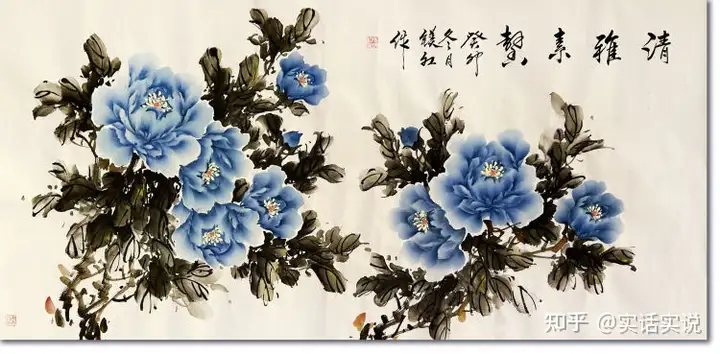 清雅素馨
癸卯
冬月
红
作
知乎 @实话实说